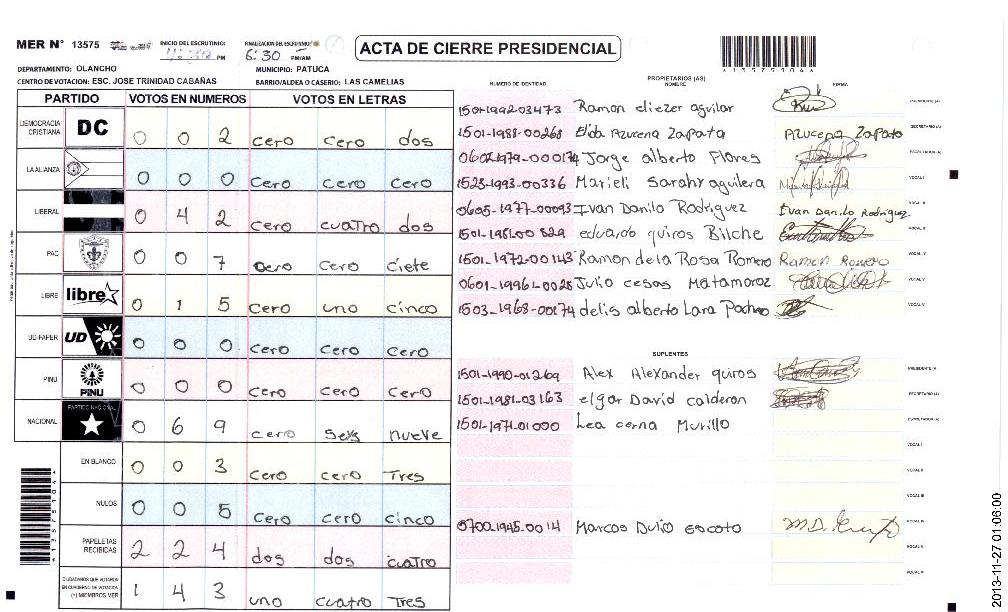 MER N° 13575 INICIO DEL ESCRUTINIO: PM FINALIZACION DEL ESCRUTINIO: 6:30 PM/AM
ACTA DE CIERRE PRESIDENCIAL
DEPARTAMENTO: OLANCHO MUNICIPIO: PATUCA
CENTRO DE VOTACION: ESC. JOSE TRINIDAD CABAÑAS BARRIO/ALDEA O CASERIO: LAS CAMELIAS
PARTIDO VOTOS EN NUMEROS VOTOS EN LETRAS
DEMOCRACIA CRISTIANA DC 0 0 2 cero cero dos
LA ALIANZA 0 0 0 cero cero cero
LIBERAL 0 4 2 cero cuatro dos
PAC 0 0 7 cero cero ciete
LIBRE libre 0 1 5 cero uno cinco
UD-FAPER UD 0 0 0 cero cero cero
PINU PINU 0 0 0 cero cero cero
NACIONAL PARTIDO NACIONAL 0 6 9 cero seys nueve
EN BLANCO 0 0 3 cero cero Tres
NULOS 0 0 5 cero cero cinco
PAPELETAS RECIBIDAS 2 2 4 dos dos cuatro
CIUDADANOS QUE VOTARON EN CUADERNO DE VOTACION (+) MIEMBROS MER 1 4 3 uno cuatro Tres
PROPIETARIOS (AS)
NUMERO DE IDENTIDAD NOMBRE FIRMA
1501-1992-03473 Ramon eliezer aguilar PRESIDENTE (A)
1501-1988-00268 Elda Azucena Zapata Azucena Zapata SECRETARIO (A)
0602-1979-000174 Jorge alberto Flores ESCRUTADOR (A)
1523-1993-00336 Marieli Sarahy aguilera VOCAL I
0605-1977-00093 Ivan Danilo Rodriguez Ivan Danilo Rodriguez VOCAL II
1501-1981-00 529 eduardo quiros Bilche VOCAL III
1501-1972-00143 Ramon de la Rosa Romero Ramon Romero VOCAL IV
0601-1996-0028 Julio cesas Matamoroz VOCAL V
1503-1968-00174 delis alberto Lara Pacheco VOCAL V
SUPLENTES
1501-1990-01269 Alex Alexander quiros PRESIDENTE (A)
1501-1981-03163 elgar David calderon SECRETARIO (A)
1501-1971-01000 Lea cerna Murillo ESCRUTADOR (A)
VOCAL I
VOCAL II
VOCAL III
0700-1945-0014 Marcos Dulio escoto VOCAL IV
VOCAL V
VOCAL VI
2013-11-27 01:06:00